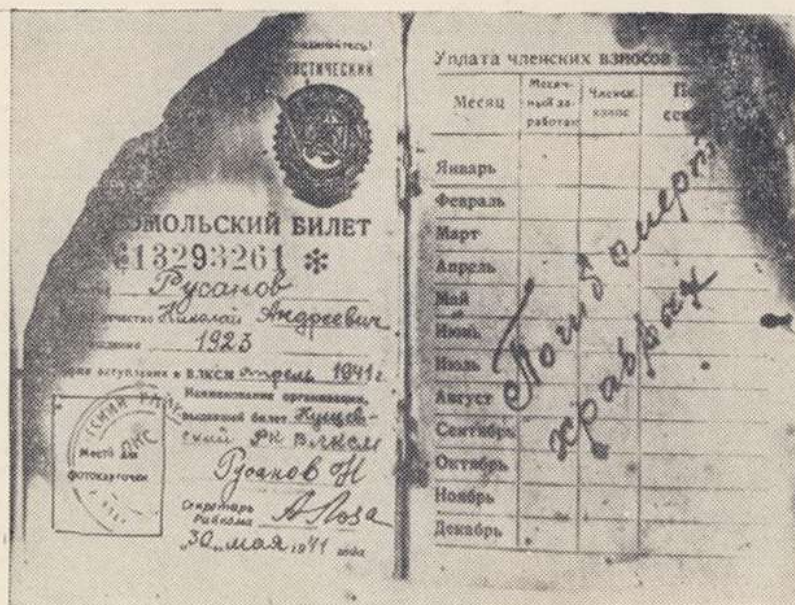 СТИЧЕСКИЙ
ОМОЛЬСКИЙ БИЛЕТ
13293261 *
Русанов
чество Николай Андреевич
1923
вступления в ВЛКСМ апрель 1941 г.
Наименование организации,
выдавшей билет Кущев-
ский РК ВЛКСМ
Место для
фотокарточки
Русанов Н
Секретарь
Райкома А Лоза
„30„ мая 1941 года
Уплата членских взносов
Месяц
Месяч-
ный за-
работок
Членск.
взнос
Январь
Февраль
Март
Апрель
Май
Июнь
Июль
Август
Сентябрь
Октябрь
Ноябрь
Декабрь
Погиб смерт
храбрых